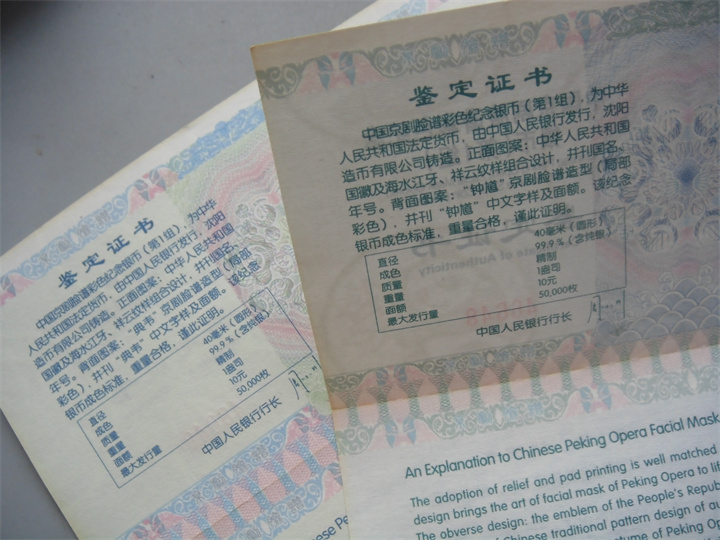 鉴定证书
中国京剧脸谱彩色纪念银币(第1组),为中华
人民共和国法定货币,由中国人民银行发行,沈阳
造币有限公司铸造。正面图案:中华人民共和国
国徽及海水江牙、祥云纹样组合设计,并刊国名、
年号。背面图案:"典韦"京剧脸谱造型(局部
彩色),并刊"典韦"中文字样及面额。该纪念
银币成色标准,重量合格,谨此证明。
直径 40毫米(圆形)
成色 99.9%(含纯银)
质量 精制
重量 1盎司
面额 10元
最大发行量 50,000枚
中国人民银行行长
Chinese Pe
鉴定证书
中国京剧脸谱彩色纪念银币(第1组),为中华
人民共和国法定货币,由中国人民银行发行,沈阳
造币有限公司铸造。正面图案:中华人民共和国
国徽及海水江牙、祥云纹样组合设计,并刊国名、
年号。背面图案:"钟馗"京剧脸谱造型(局部
彩色),并刊"钟馗"中文字样及面额。该纪念
银币成色标准,重量合格,谨此证明。
直径 40毫米(圆形)
成色 99.9%(含纯银)
质量 精制
重量 1盎司
面额 10元
最大发行量 50,000枚
中国人民银行行长
An Explanation to Chinese Peking Opera Facial Mask
The adoption of relief and pad printing is well matched
design brings the art of facial mask of Peking Opera to lif
The obverse design: the emblem of the People's Repub
of Chinese traditional pattern design of au
tume of Peking O